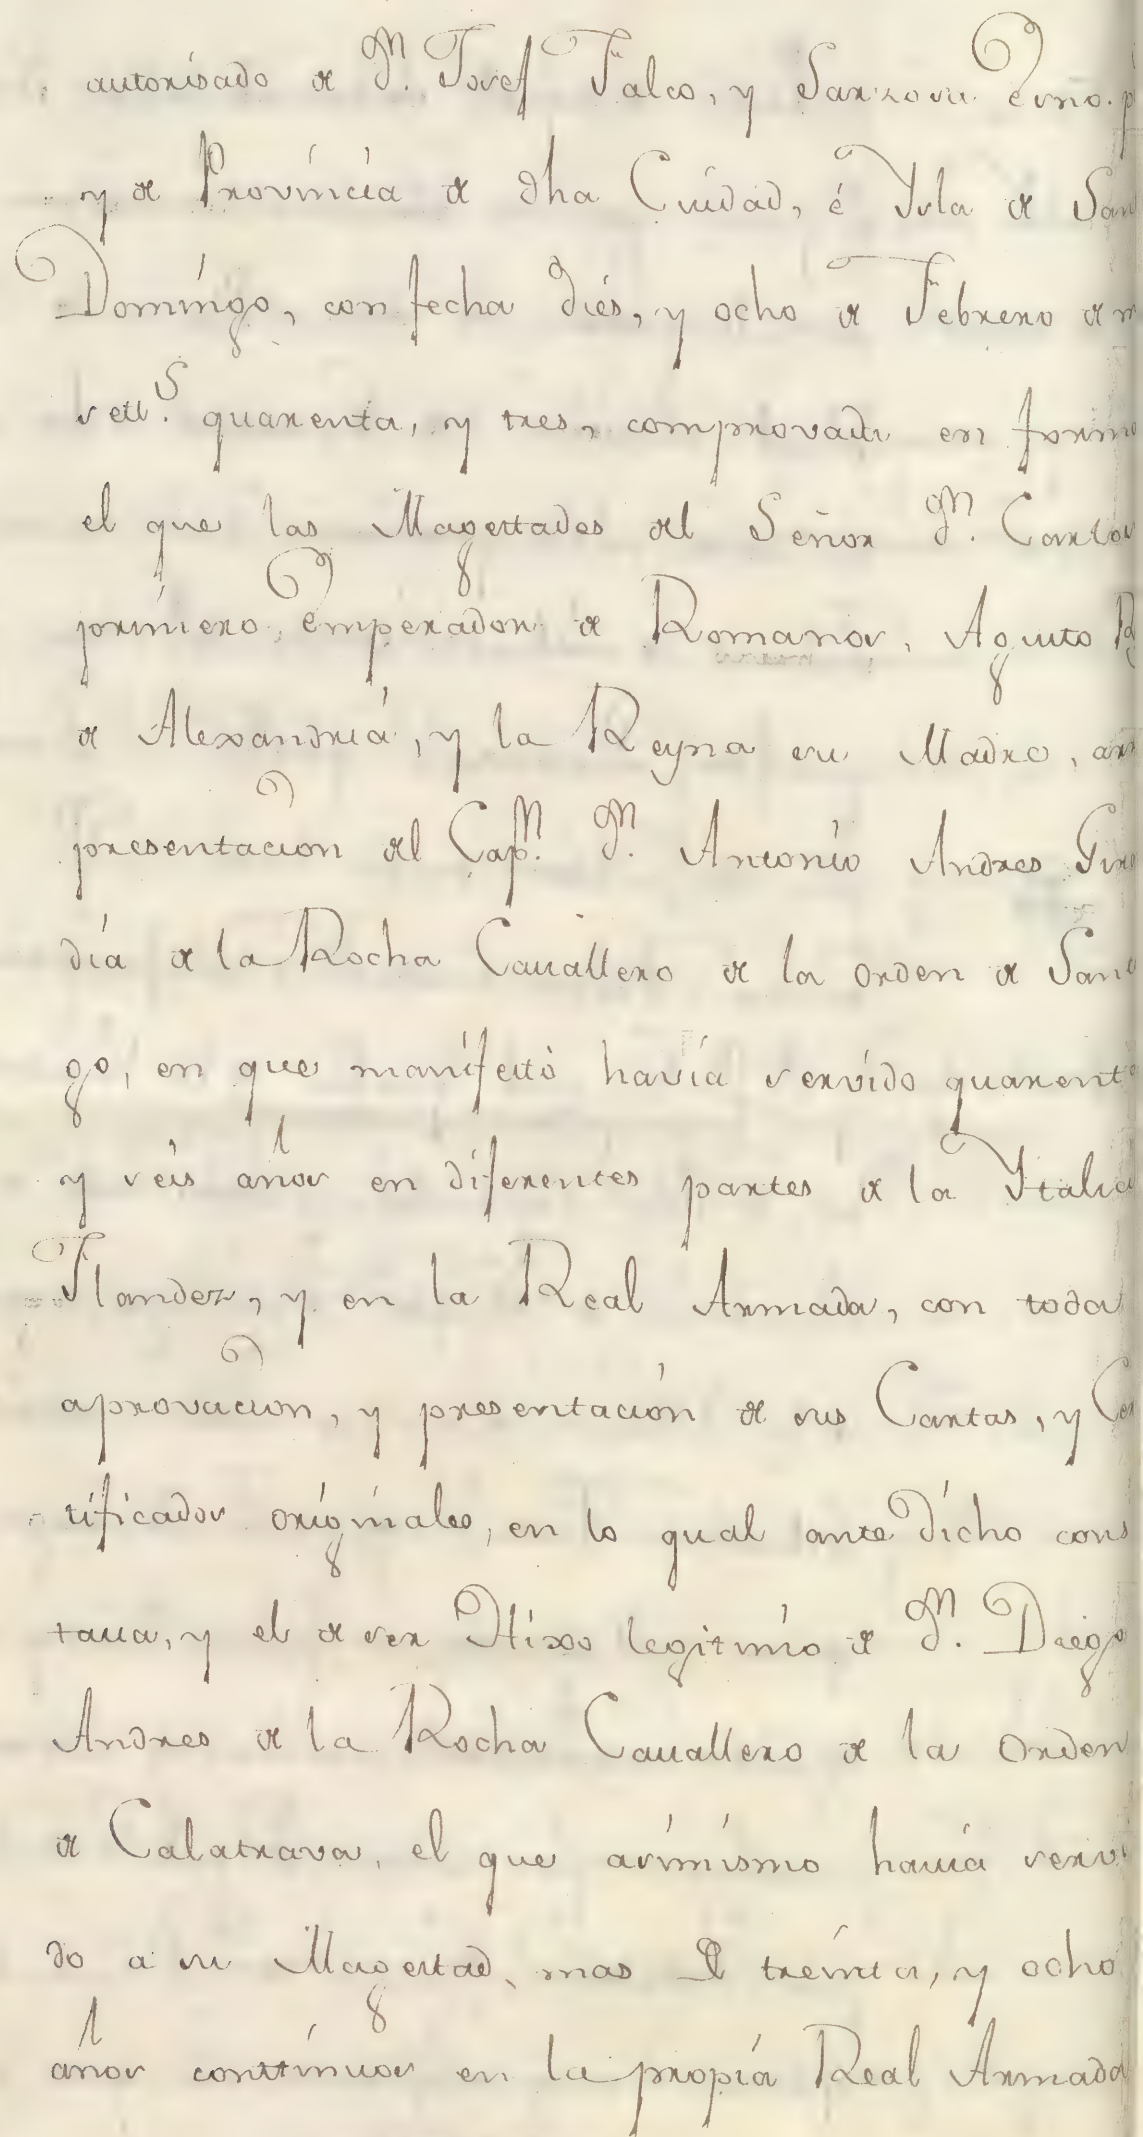 autorisado de Dn. Josef Falco, y Sarzosa Esno. p
y de Provincia de dha Ciudad, é Ysla de San
Domingo, con fecha diés, y ocho de Febrero de m
setts. quarenta, y tres, comprovada en forma
el que las Magestades del Señor Dn. Carlos
primero, Emperador de Romanos, Agusto R
de Alexandria, y la Reyna su Madre, a
presentacion del Capn. Dn. Antonio Andres
dia de la Rocha Cauallero de la orden de San
go, en que manifestò havia servido quarenta
y séis años en diferentes partes de la Italia
Flandez, y en la Real Armada, con toda
aprovacion, y presentación de sus Cartas, y Cer
tificados originales, en lo qual ante dicho cons
taua, y el de ser Hixo legitimo de Dn. Diego
Andres de la Rocha Cauallero de la Orden
de Calatrava, el que asimismo hauia servi
do a su Magestad, mas de treinta, y ocho
años conttinuos en la propia Real Armada